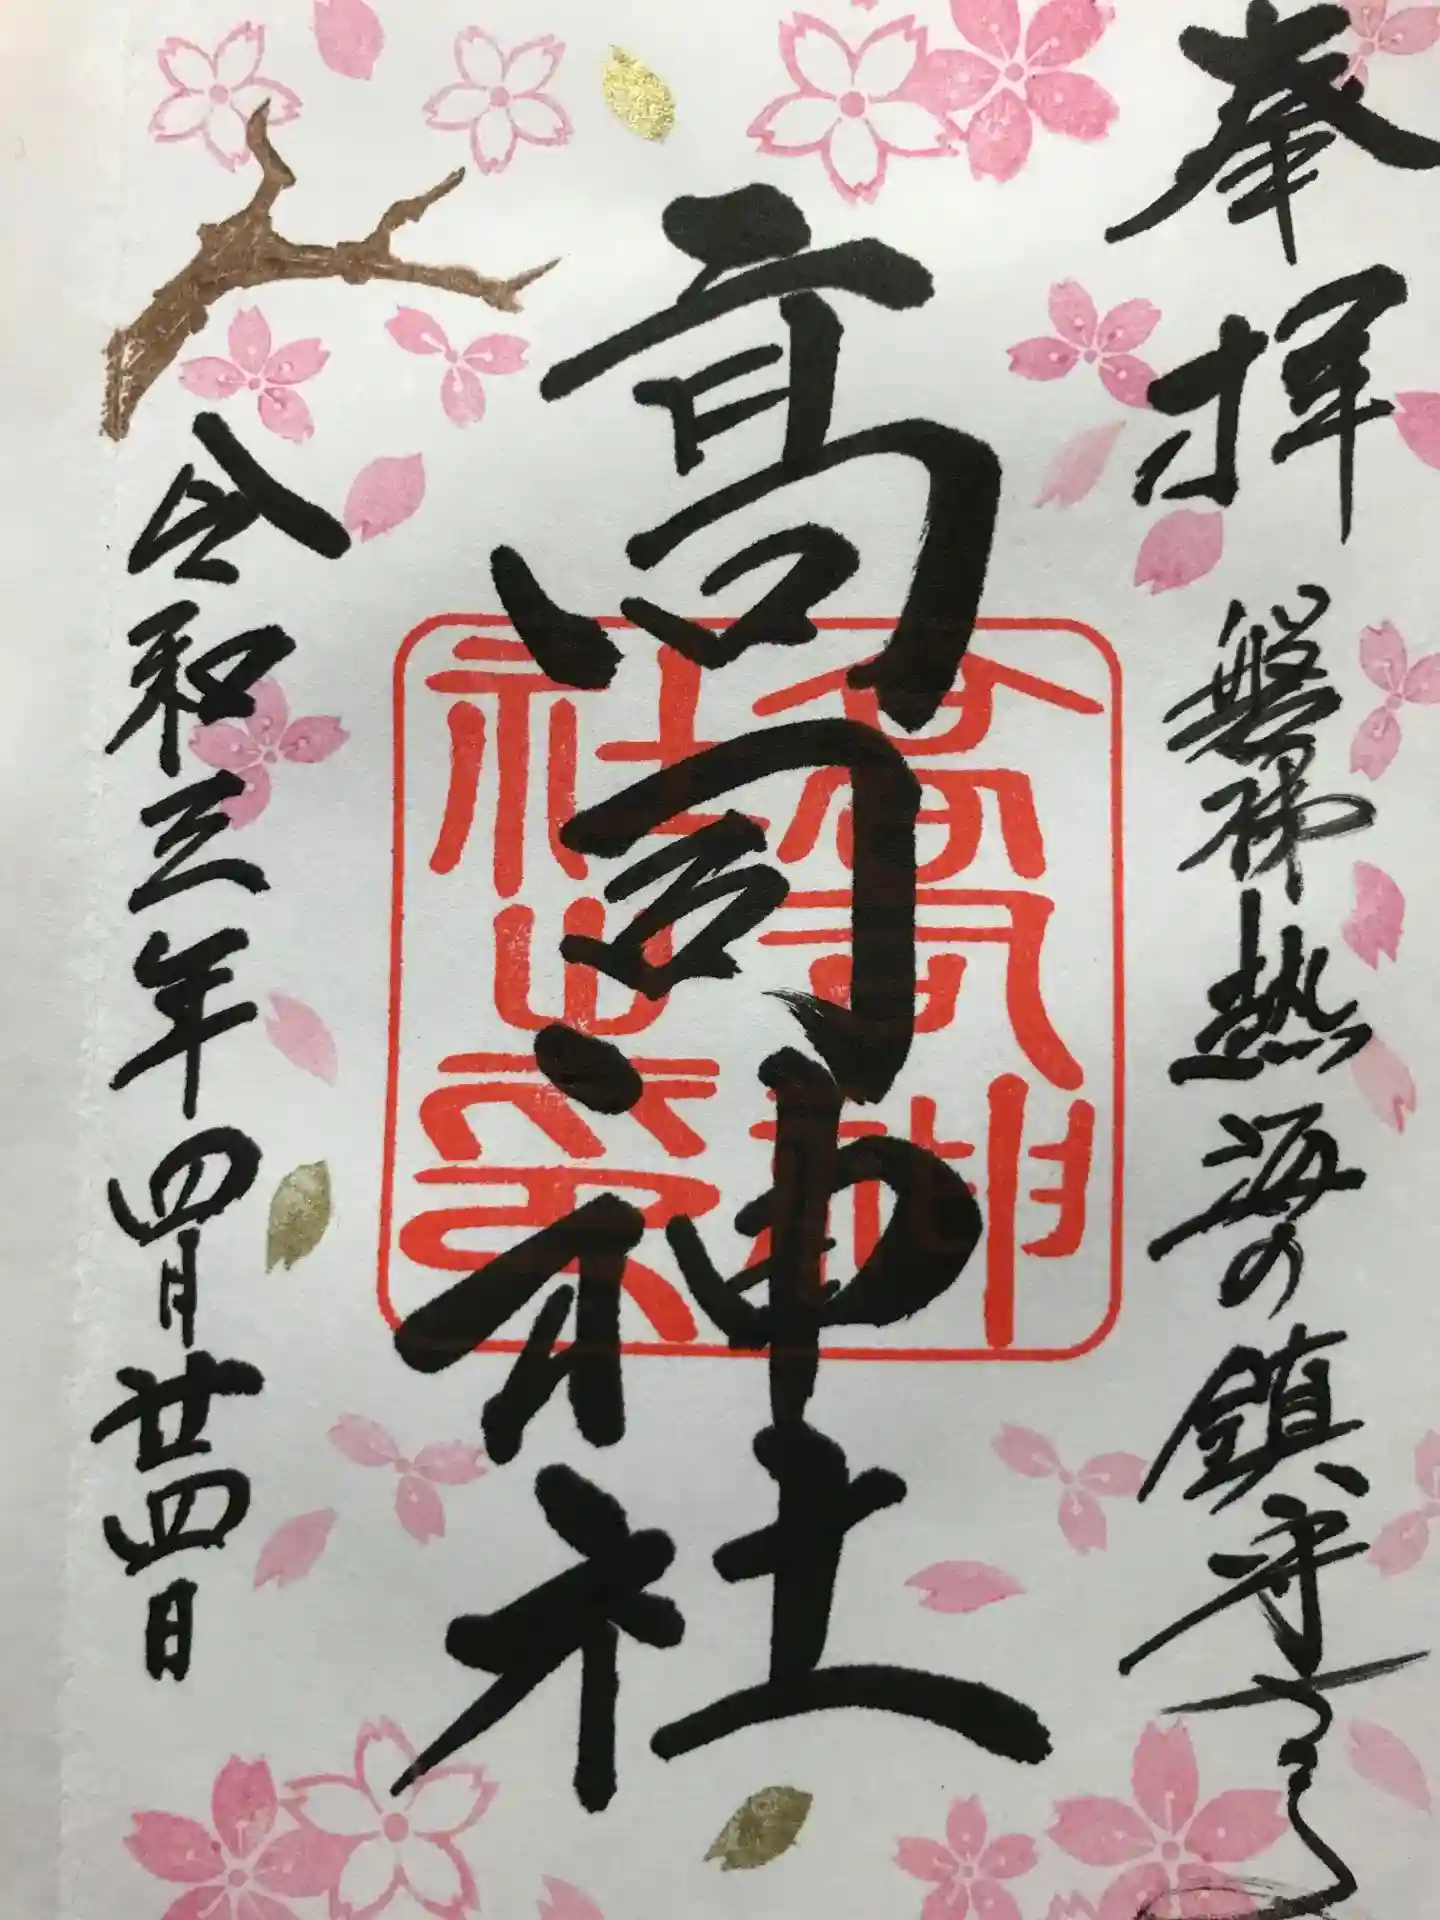 奉拝
磐梯熱海の鎮守
高司神社
高司神社之印
令和三年四月廿四日